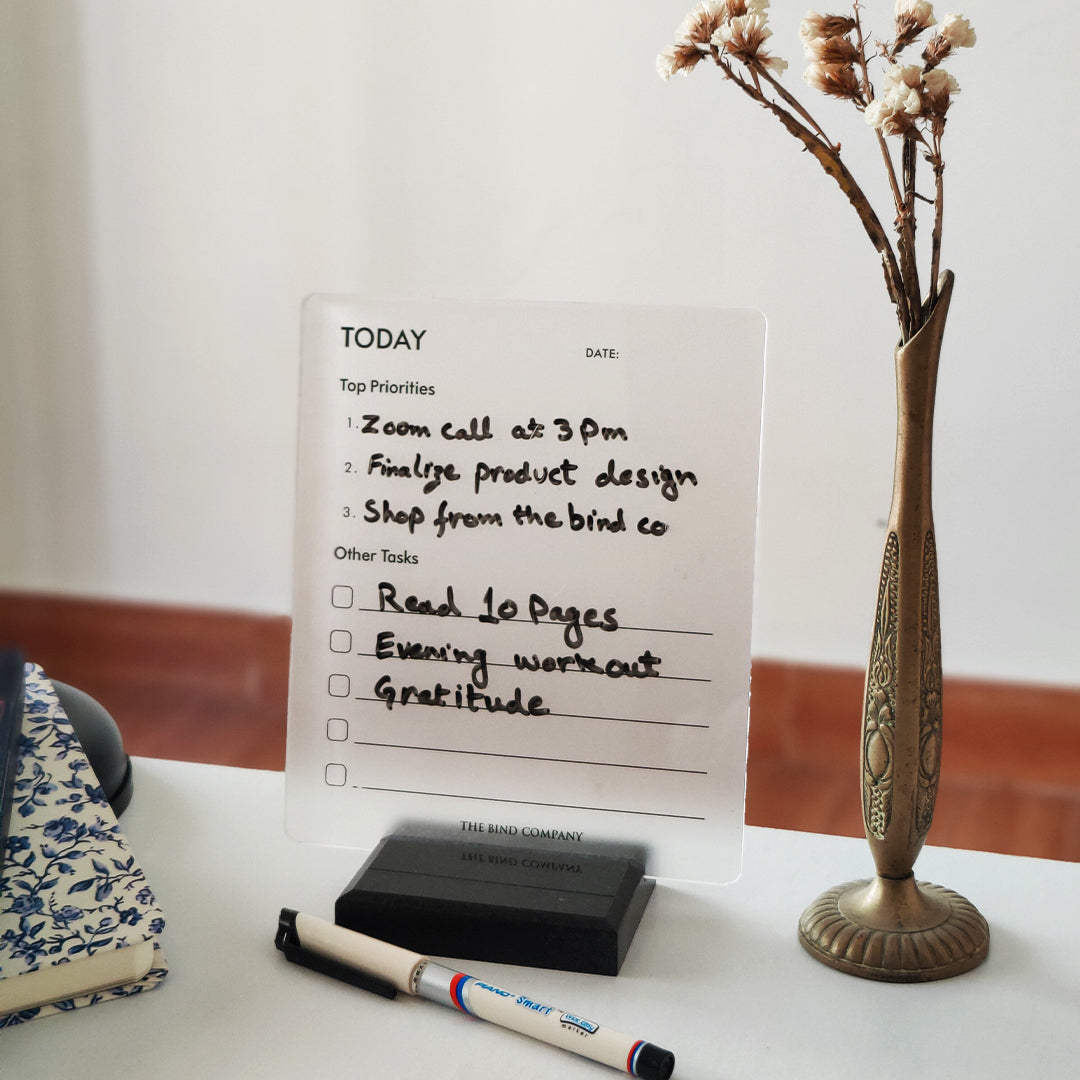 TODAY
DATE:
Top Priorities
1. Zoom call at 3 Pm
2. Finalize product design
3. Shop from the bind co
Other Tasks
Read 10 Pages
Evening workout
Gratitude
THE BIND COMPANY
PIANO Smart
marker